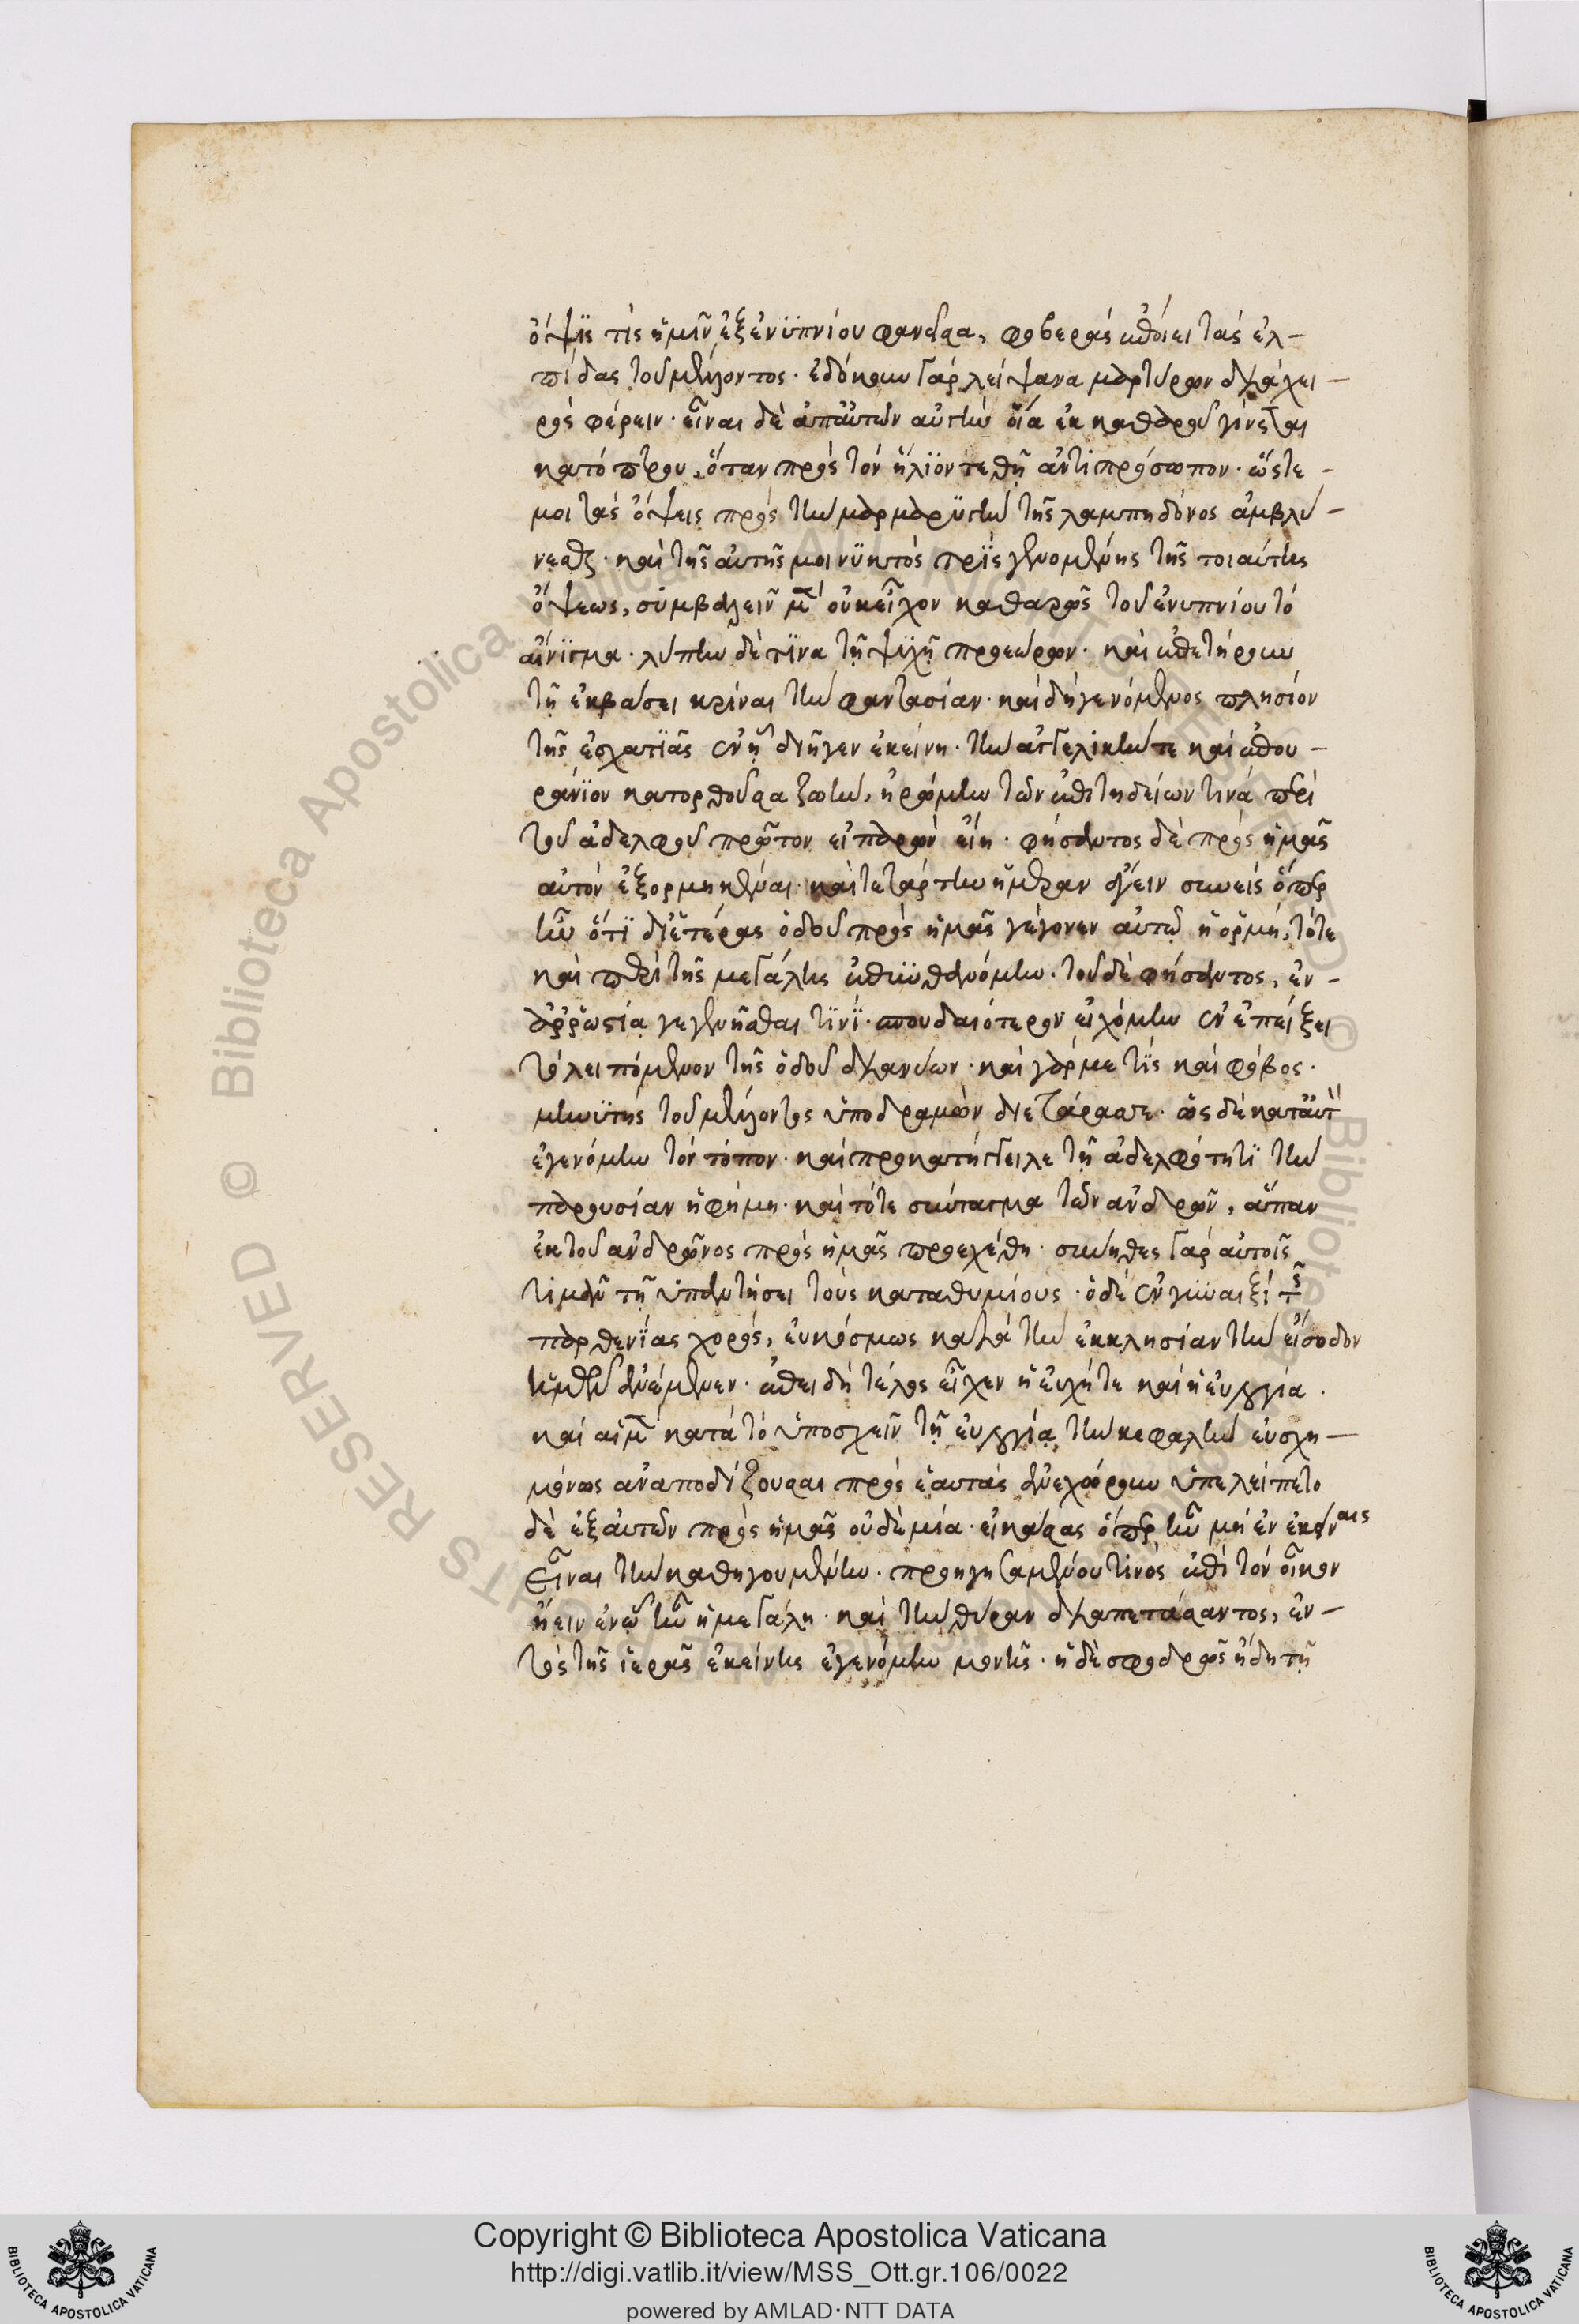 ὄψϊς τὶς ἡμῖν ἐξ ἐνϋπνίου φανεῖσα, φοβερὰς ἐποίει τὰς ἐλ-
πίδας τοῦ μέλλοντος. ἐδόκουν γὰρ λείψανα μαρτύρων διὰ χει-
ρὸς φέρειν. εἶναι δὲ ἀπ' αὐτῶν αὐγὴν οἵα ἐκ καθαροῦ γίνεται
κατόπτρου, ὅταν πρὸς τὸν ἥλϊον τεθῇ ἀντιπρόσωπον. ὥστε
μοι τὰς ὄψεις πρὸς τὴν μαρμαρϋγὴν τῆς λαμπηδόνος ἀμβλύ-
νεσθαι. καὶ τῆς αὐτῆς μοι νϋκτὸς τρϊὶς γενομένης τῆς τοιαύτης
ὄψεως, συμβαλεῖν μὲν οὐκ εἶχον καθαρῶς τοῦ ἐνυπνίου τὸ
αἴνϊγμα. λύπην δέ τϊνα τῇ ψϋχῇ προεώρων. καὶ ἐπετήρουν
τῇ ἐκβάσει κρίναι τὴν φαντασίαν. καὶ δὴ γενόμενος πλησίον
τῆς ἐσχατϊᾶς ἐν ᾗ διῆγεν ἐκείνη. τὴν ἀγγελικήν τε καὶ ἐπου-
ράνϊον κατορθοῦσα ζωήν, ἠρόμην τῶν ἐπιτηδείων τινὰ περὶ
τοῦ ἀδελφοῦ πρῶτον εἰ παρὼν εἴη. φήσαντος δὲ πρὸς ἡμᾶς
αὐτὸν ἐξορμηκέναι. καὶ τετάρτην ἡμέραν ἄγειν συνεὶς ὅπερ
ἦν ὅτϊ δι' ἑτέρας ὁδοῦ πρὸς ἡμᾶς γέγονεν αὐτῷ ἡ ὁρμή, τότε
καὶ περὶ τῆς μεγάλης ἐπϋνθανόμην. τοῦ δὲ φήσαντος, ἐν
ἀρρωστίᾳ γεγενῆσθαι τϊνϊ. σπουδαιότερον εἰχόμην ἐν ἐπείξει
τὸ λειπόμενον τῆς ὁδοῦ διανύων. καὶ γάρ με τϊς καὶ φόβος.
μηνϋτὴς τοῦ μέλλοντος ὑποδραμὼν διετάρασσε. ὡς δὲ κατ' αὐτὸν
ἐγενόμην τὸν τόπον. καὶ προκατήγγειλε τῇ ἀδελφότητϊ τὴν
παρουσίαν ἡ φήμη. καὶ τότε σύνταγμα τῶν ἀνδρῶν, ἅπαν
ἐκ τοῦ ἀνδρῶνος πρὸς ἡμᾶς προεχέθη. σύνηθες γὰρ αὐτοῖς
τιμᾶν τῇ ὑπαντήσει τοὺς καταθυμίους. ὁ δὲ ἐν γυναιξὶ τῆς
παρθενίας χορός, εὐκόσμως κατὰ τὴν ἐκκλησίαν τὴν εἴσοδον
ἡμῶν ἀνέμενεν. ἐπειδὴ τέλος εἶχεν ἡ εὐχή τε καὶ ἡ εὐλογία.
καὶ αἱ μὲν κατὰ τὸ ὑποσχεῖν τῇ εὐλογίᾳ τὴν κεφαλὴν εὐσχη-
μόνως ἀναποδίζουσαι πρὸς ἑαυτὰς ἀνεχώρουν ὑπελείπετο
δὲ ἐξ αὐτῶν πρὸς ἡμᾶς οὐδὲ μία. εἰκάσας ὅπερ ἦν μὴ ἐν ἐκείναις
εἶναι τὴν καθηγουμένην. προηγησαμένου τινὸς ἐπὶ τὸν οἶκον
ᾔειν ἐν ᾧ ἦν ἡ μεγάλη. καὶ τὴν θύραν διαπετάσαντος, ἐν-
τὸς τῆς ἱερᾶς ἐκείνης ἐγενόμην μονῆς. ἡ δὲ σφοδρῶς ἤδη τῇ
Copyright © Biblioteca Apostolica Vaticana
http://digi.vatlib.it/view/MSS_Ott.gr.106/0022
powered by AMLAD·NTT DATA